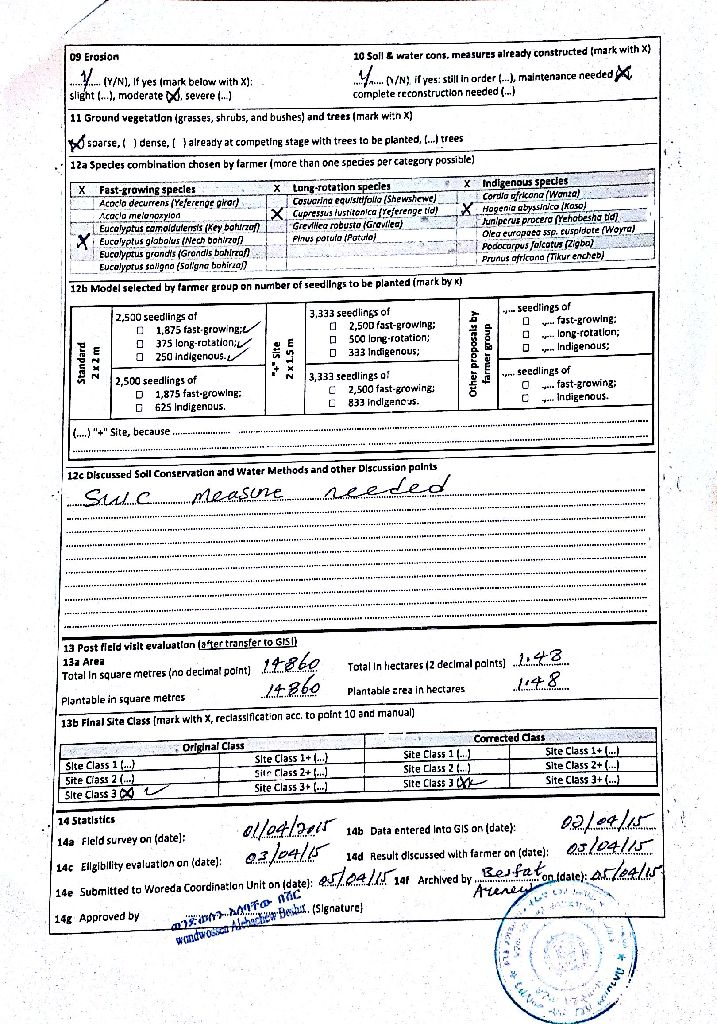 09 Erosion
Y (Y/N), if yes (mark below with X):
slight (...), moderate (X), severe (...)
10 Soil & water cons. measures already constructed (mark with X)
Y (Y/N), if yes: still in order (...), maintenance needed (X),
complete reconstruction needed (...)
11 Ground vegetation (grasses, shrubs, and bushes) and trees (mark with X)
(X) sparse, ( ) dense, ( ) already at competing stage with trees to be planted, (...) trees
12a Species combination chosen by farmer (more than one species per category possible)
X Fast-growing species
Acacia decurrens (Yeferenge girar)
Acacia melanoxylon
Eucalyptus camaldulensis (Key bahirzaf)
X Eucalyptus globolus (Nech bahirzaf)
Eucalyptus grandis (Grandis bahirzaf)
Eucalyptus saligna (Saligna bahirzaf)
X Long-rotation species
Casuarina equisitifolia (Shewshewe)
X Cupressus lusitanica (Yeferenge tid)
Grevillea robusta (Gravilea)
Pinus patula (Patula)
X Indigenous species
Cordia africana (Wanza)
X Hagenia abyssinica (Koso)
Juniperus procera (Yehabesha tid)
Olea europaea ssp. cuspidate (Woyra)
Podocarpus falcatus (Zigba)
Prunus africana (Tikur encheb)
12b Model selected by farmer group on number of seedlings to be planted (mark by x)
Standard
2 x 2 m
2,500 seedlings of
☐ 1,875 fast-growing; ✓
☐ 375 long-rotation; ✓
☐ 250 indigenous. ✓
2,500 seedlings of
☐ 1,875 fast-growing;
☐ 625 indigenous.
"+" Site
2 x 1.5 m
3,333 seedlings of
☐ 2,500 fast-growing;
☐ 500 long-rotation;
☐ 333 indigenous;
3,333 seedlings of
☐ 2,500 fast-growing;
☐ 833 indigenous.
Other proposals by
farmer group
.,... seedlings of
☐ .,... fast-growing;
☐ .,... long-rotation;
☐ .,... indigenous;
.,... seedlings of
☐ .,... fast-growing;
☐ .,... indigenous.
(....) "+" Site, because
12c Discussed Soil Conservation and Water Methods and other Discussion points
SWC measure needed
13 Post field visit evaluation (after transfer to GIS!)
13a Area
Total in square metres (no decimal point) 14860
Total in hectares (2 decimal points) 1.48
Plantable in square metres 14860
Plantable area in hectares 1.48
13b Final Site Class (mark with X, reclassification acc. to point 10 and manual)
Original Class
Corrected Class
Site Class 1 (...) Site Class 1+ (...) Site Class 1 (...) Site Class 1+ (...)
Site Class 2 (...) Site Class 2+ (...) Site Class 2 (...) Site Class 2+ (...)
Site Class 3 (X) ✓ Site Class 3+ (...) Site Class 3 (X) ✓ Site Class 3+ (...)
14 Statistics
14a Field survey on (date): 01/04/2015
14b Data entered into GIS on (date): 02/04/15
14c Eligibility evaluation on (date): 03/04/15
14d Result discussed with farmer on (date): 03/04/15
14e Submitted to Woreda Coordination Unit on (date): 05/04/15
14f Archived by on (date): 05/04/15
14g Approved by (Signature)